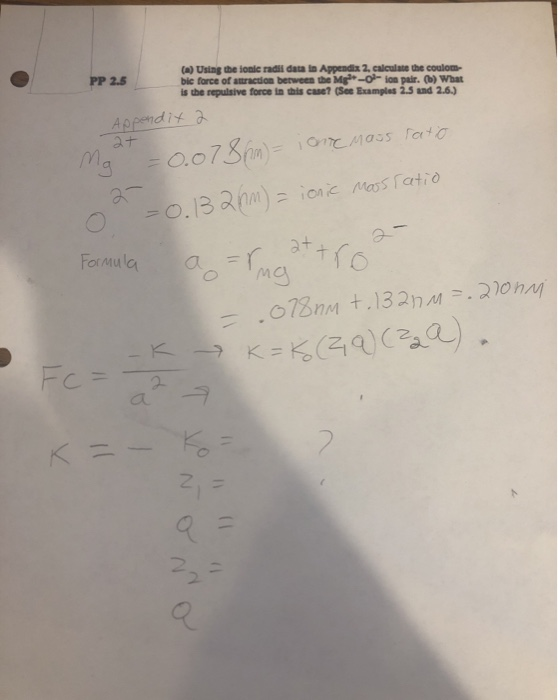 PP 2.5
(a) Using the ionic radii data in Appendix 2, calculate the coulom-
bic force of attraction between the Mg²⁺–O²⁻ ion pair. (b) What
is the repulsive force in this case? (See Examples 2.5 and 2.6.)
Appendix 2
Mg²⁺ = 0.078(nm) = ionic mass ratio
O²⁻ = 0.132(nm) = ionic mass ratio
Formula a₀ = r Mg²⁺ + r O²⁻
= .078nM + .132nM = .210nM
Fc = -K/a² → K = K₀(Z₁q)(Z₂q).
→
K = - K₀ = ?
Z₁ =
q =
Z₂ =
q